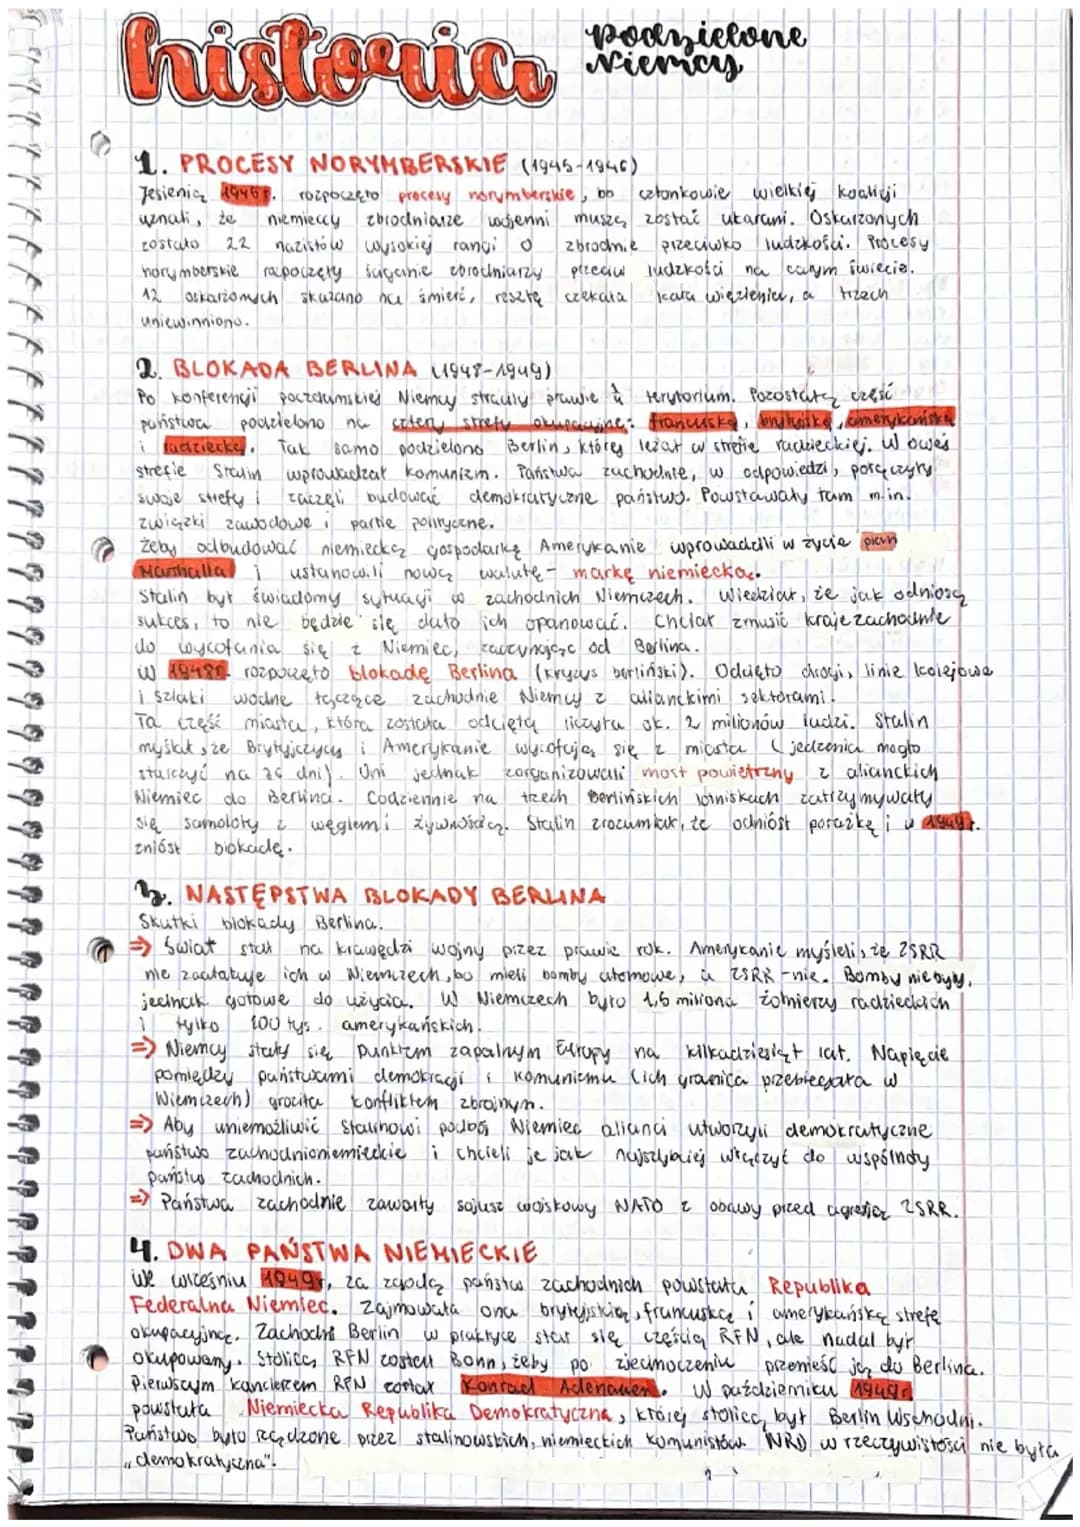 historia
podzielone
Niemcy
1. PROCESY NORYMBERSKIE (1945-1946)
Jesienią 1945 r. rozpoczęto procesy norymberskie, bo członkowie wielkiej koalicji
uznali, że niemieccy zbrodniarze wojenni muszą zostać ukarani. Oskarżonych
zostało 22 nazistów wysokiej rangi o zbrodnie przeciwko ludzkości. Procesy
norymberskie rozpoczęły ściganie zbrodniarzy przeciw ludzkości na całym świecie.
12 oskarżonych skazano na śmierć, resztę czekała kara więzienia, a trzech
uniewinniono.
2. BLOKADA BERLINA (1948-1949)
Po konferencji poczdamskiej Niemcy straciły prawie ¼ terytorium. Pozostałą część
państwa podzielono na cztery strefy okupacyjne: francuską, brytyjską, amerykańską
i radziecką. Tak samo podzielono Berlin, który leżał w strefie radzieckiej. W owej
strefie Stalin wprowadzał komunizm. Państwa zachodnie, w odpowiedzi, połączyły
swoje strefy i zaczęli budować demokratyczne państwo. Powstawały tam m.in.
związki zawodowe i partie polityczne.
Żeby odbudować niemiecką gospodarkę Amerykanie wprowadzili w życie plan
Marshalla i ustanowili nową walutę - markę niemiecką.
Stalin był świadomy sytuacji w zachodnich Niemczech. Wiedział, że jak odniosą
sukces, to nie będzie się dało ich opanować. Chciał zmusić kraje zachodnie
do wycofania się z Niemiec, zaczynając od Berlina.
W 1948r. rozpoczęto blokadę Berlina (kryzys berliński). Odcięto drogi, linie kolejowe
i szlaki wodne łączące zachodnie Niemcy z alianckimi sektorami.
Ta część miasta, która została odcięta liczyła ok. 2 milionów ludzi. Stalin
myślał, że Brytyjczycy i Amerykanie wycofają się z miasta (jedzenia mogło
starczyć na 36 dni). Oni jednak zorganizowali most powietrzny z alianckich
Niemiec do Berlina. Codziennie na trzech berlińskich lotniskach zatrzymywały
się samoloty z węglem i żywnością. Stalin zrozumiał, że odniósł porażkę i w 1949r.
zniósł blokadę.
3. NASTĘPSTWA BLOKADY BERLINA
Skutki blokady Berlina.
⇒ Świat stał na krawędzi wojny przez prawie rok. Amerykanie myśleli, że ZSRR
nie zaatakuje ich w Niemczech, bo mieli bomby atomowe, a ZSRR - nie. Bomby nie były,
jednak gotowe do użycia. W Niemczech było 1,5 miliona żołnierzy radzieckich
i tylko 100 tys. amerykańskich.
⇒ Niemcy stały się punktem zapalnym Europy na kilkadziesiąt lat. Napięcie
pomiędzy państwami demokracji i komunizmu (ich granica przebiegała w
Niemczech) groziła konfliktem zbrojnym.
⇒ Aby uniemożliwić Stalinowi podbój Niemiec alianci utworzyli demokratyczne
państwo zachodnioniemieckie i chcieli je jak najszybciej włączyć do wspólnoty
państw zachodnich.
⇒ Państwa zachodnie zawarły sojusz wojskowy NATO z obawy przed agresją ZSRR.
4. DWA PAŃSTWA NIEMIECKIE
We wrześniu 1949r, za zgodą państw zachodnich powstała Republika
Federalna Niemiec. Zajmowała ona brytyjską, francuską i amerykańską strefę
okupacyjną. Zachodni Berlin w praktyce stał się częścią RFN, ale nadal był
okupowany. Stolicą RFN został Bonn, żeby po zjednoczeniu przenieść ją do Berlina.
Pierwszym kanclerzem RFN został Konrad Adenauer. W październiku 1949r.
powstała Niemiecka Republika Demokratyczna, której stolicą był Berlin Wschodni.
Państwo było rządzone przez stalinowskich, niemieckich komunistów. NRD w rzeczywistości nie była
„demokratyczna".